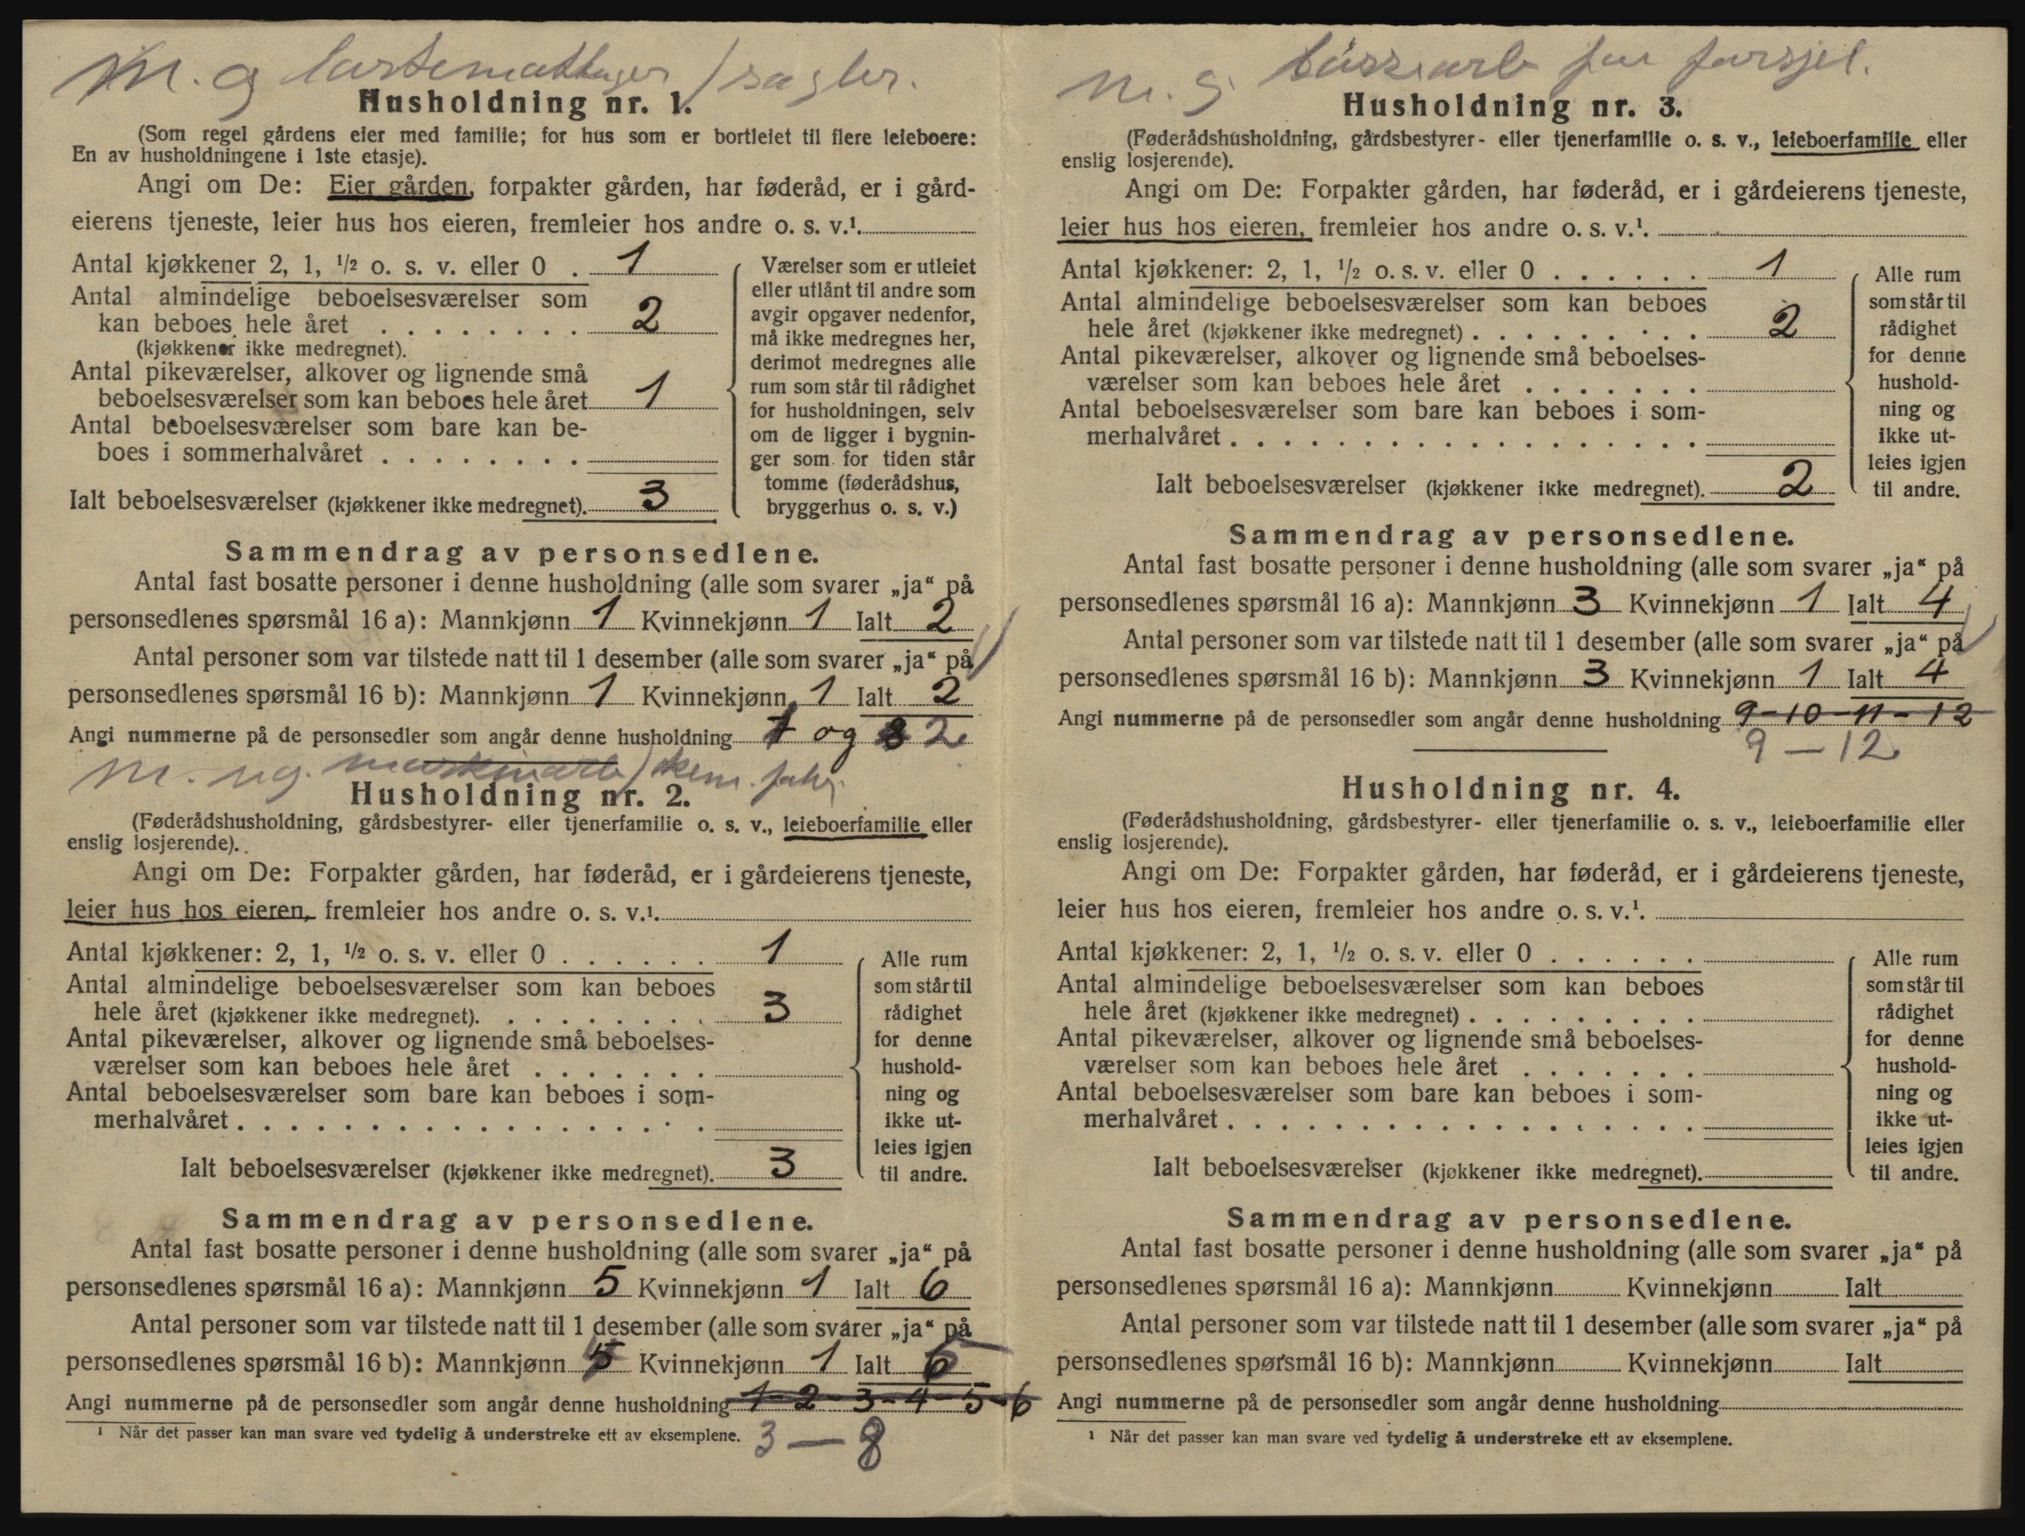 M. g
Husholdning nr. 1.
(Som regel gårdens eier med familie; for hus som er bortleiet til flere leieboere:
En av husholdningene i 1ste etasje).
Angi om De: Eier gården, forpakter gården, har føderåd, er i gård-
eierens tjeneste, leier hus hos eieren, fremleier hos andre o. s. v.¹.
Antal kjøkkener 2, 1, ½ o. s. v. eller 0 . 1
Antal almindelige beboelsesværelser som
kan beboes hele året . . . . . . . . 2
(kjøkkener ikke medregnet).
Antal pikeværelser, alkover og lignende små
beboelsesværelser som kan beboes hele året 1
Antal beboelsesværelser som bare kan be-
boes i sommerhalvåret . . . . . . . .
Ialt beboelsesværelser (kjøkkener ikke medregnet). 3
Værelser som er utleiet
eller utlånt til andre som
avgir opgaver nedenfor,
må ikke medregnes her,
derimot medregnes alle
rum som står til rådighet
for husholdningen, selv
om de ligger i bygnin-
ger som for tiden står
tomme (føderådshus,
bryggerhus o. s. v.)
Sammendrag av personsedlene.
Antal fast bosatte personer i denne husholdning (alle som svarer „ja“ på
personsedlenes spørsmål 16 a): Mannkjønn 1 Kvinnekjønn 1 Ialt 2
Antal personer som var tilstede natt til 1 desember (alle som svarer „ja“ på
personsedlenes spørsmål 16 b): Mannkjønn 1 Kvinnekjønn 1 Ialt 2
Angi nummerne på de personsedler som angår denne husholdning 1 og 2
Husholdning nr. 2.
(Føderådshusholdning, gårdsbestyrer- eller tjenerfamilie o. s. v., leieboerfamilie eller
enslig losjerende).
Angi om De: Forpakter gården, har føderåd, er i gårdeierens tjeneste,
leier hus hos eieren, fremleier hos andre o. s. v.¹.
Antal kjøkkener: 2, 1, ½ o. s. v. eller 0 . . . . . . 1
Antal almindelige beboelsesværelser som kan beboes
hele året (kjøkkener ikke medregnet). . . . . . . . . 3
Antal pikeværelser, alkover og lignende små beboelses-
værelser som kan beboes hele året . . . . . . .
Antal beboelsesværelser som bare kan beboes i som-
merhalvåret . . . . . . . . . . . . . . . . . .
Ialt beboelsesværelser (kjøkkener ikke medregnet). 3
Alle rum
som står til
rådighet
for denne
hushold-
ning og
ikke ut-
leies igjen
til andre.
Sammendrag av personsedlene.
Antal fast bosatte personer i denne husholdning (alle som svarer „ja“ på
personsedlenes spørsmål 16 a): Mannkjønn 5 Kvinnekjønn 1 Ialt 6
Antal personer som var tilstede natt til 1 desember (alle som svarer „ja“ på
personsedlenes spørsmål 16 b): Mannkjønn Kvinnekjønn 1 Ialt
Angi nummerne på de personsedler som angår denne husholdning 1-2-3-4-5-6
¹ Når det passer kan man svare ved tydelig å understreke ett av eksemplene. 3 — 8
Husholdning nr. 3.
(Føderådshusholdning, gårdsbestyrer- eller tjenerfamilie o. s. v., leieboerfamilie eller
enslig losjerende).
Angi om De: Forpakter gården, har føderåd, er i gårdeierens tjeneste,
leier hus hos eieren, fremleier hos andre o. s. v.¹.
Antal kjøkkener: 2, 1, ½ o. s. v. eller 0 . . . . . . 1
Antal almindelige beboelsesværelser som kan beboes
hele året (kjøkkener ikke medregnet) . . . . . . . . . 2
Antal pikeværelser, alkover og lignende små beboelses-
værelser som kan beboes hele året . . . . . . .
Antal beboelsesværelser som bare kan beboes i som-
merhalvåret . . . . . . . . . . . . . . . . . .
Ialt beboelsesværelser (kjøkkener ikke medregnet). 2
Alle rum
som står til
rådighet
for denne
hushold-
ning og
ikke ut-
leies igjen
til andre.
Sammendrag av personsedlene.
Antal fast bosatte personer i denne husholdning (alle som svarer „ja“ på
personsedlenes spørsmål 16 a): Mannkjønn 3 Kvinnekjønn 1 Ialt 4
Antal personer som var tilstede natt til 1 desember (alle som svarer „ja“ på
personsedlenes spørsmål 16 b): Mannkjønn 3 Kvinnekjønn 1 Ialt 4
Angi nummerne på de personsedler som angår denne husholdning 9-10-11-12
9 — 12
Husholdning nr. 4.
(Føderådshusholdning, gårdsbestyrer- eller tjenerfamilie o. s. v., leieboerfamilie eller
enslig losjerende).
Angi om De: Forpakter gården, har føderåd, er i gårdeierens tjeneste,
leier hus hos eieren, fremleier hos andre o. s. v.¹.
Antal kjøkkener: 2, 1, ½ o. s. v. eller 0 . . . . . .
Antal almindelige beboelsesværelser som kan beboes
hele året (kjøkkener ikke medregnet) . . . . . . . . .
Antal pikeværelser, alkover og lignende små beboelses-
værelser som kan beboes hele året . . . . . . .
Antal beboelsesværelser som bare kan beboes i som-
merhalvåret . . . . . . . . . . . . . . . . . .
Ialt beboelsesværelser (kjøkkener ikke medregnet).
Alle rum
som står til
rådighet
for denne
hushold-
ning og
ikke ut-
leies igjen
til andre.
Sammendrag av personsedlene.
Antal fast bosatte personer i denne husholdning (alle som svarer „ja“ på
personsedlenes spørsmål 16 a): Mannkjønn Kvinnekjønn Ialt
Antal personer som var tilstede natt til 1 desember (alle som svarer „ja“ på
personsedlenes spørsmål 16 b): Mannkjønn Kvinnekjønn Ialt
Angi nummerne på de personsedler som angår denne husholdning
¹ Når det passer kan man svare ved tydelig å understreke ett av eksemplene.